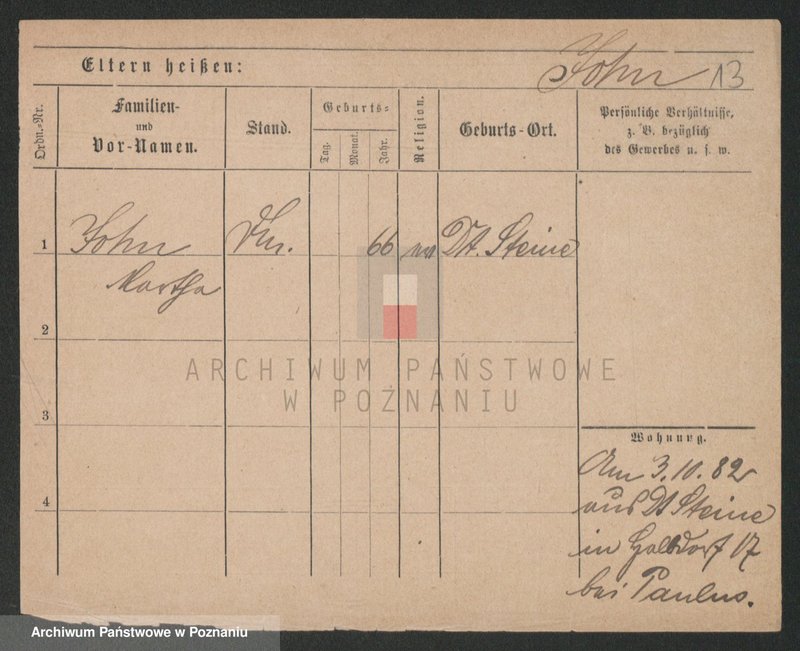 Eltern heißen:
John 13
Ordn.-Nr.
Familien-
und
Vor-Namen.
Stand.
Geburts-
Tag.
Monat.
Jahr.
Religion.
Geburts-Ort.
Persönliche Verhältnisse,
z. B. bezüglich
des Gewerbes u. s. w.
1 John 66 Dt. Steine
Martha
2
3
4
ARCHIWUM PAŃSTWOWE
W POZNANIU
Wohnung.
Am 3.10.82
aus Dt Steine
in Halbdorf 17
bei Paulus.
Archiwum Państwowe w Poznaniu